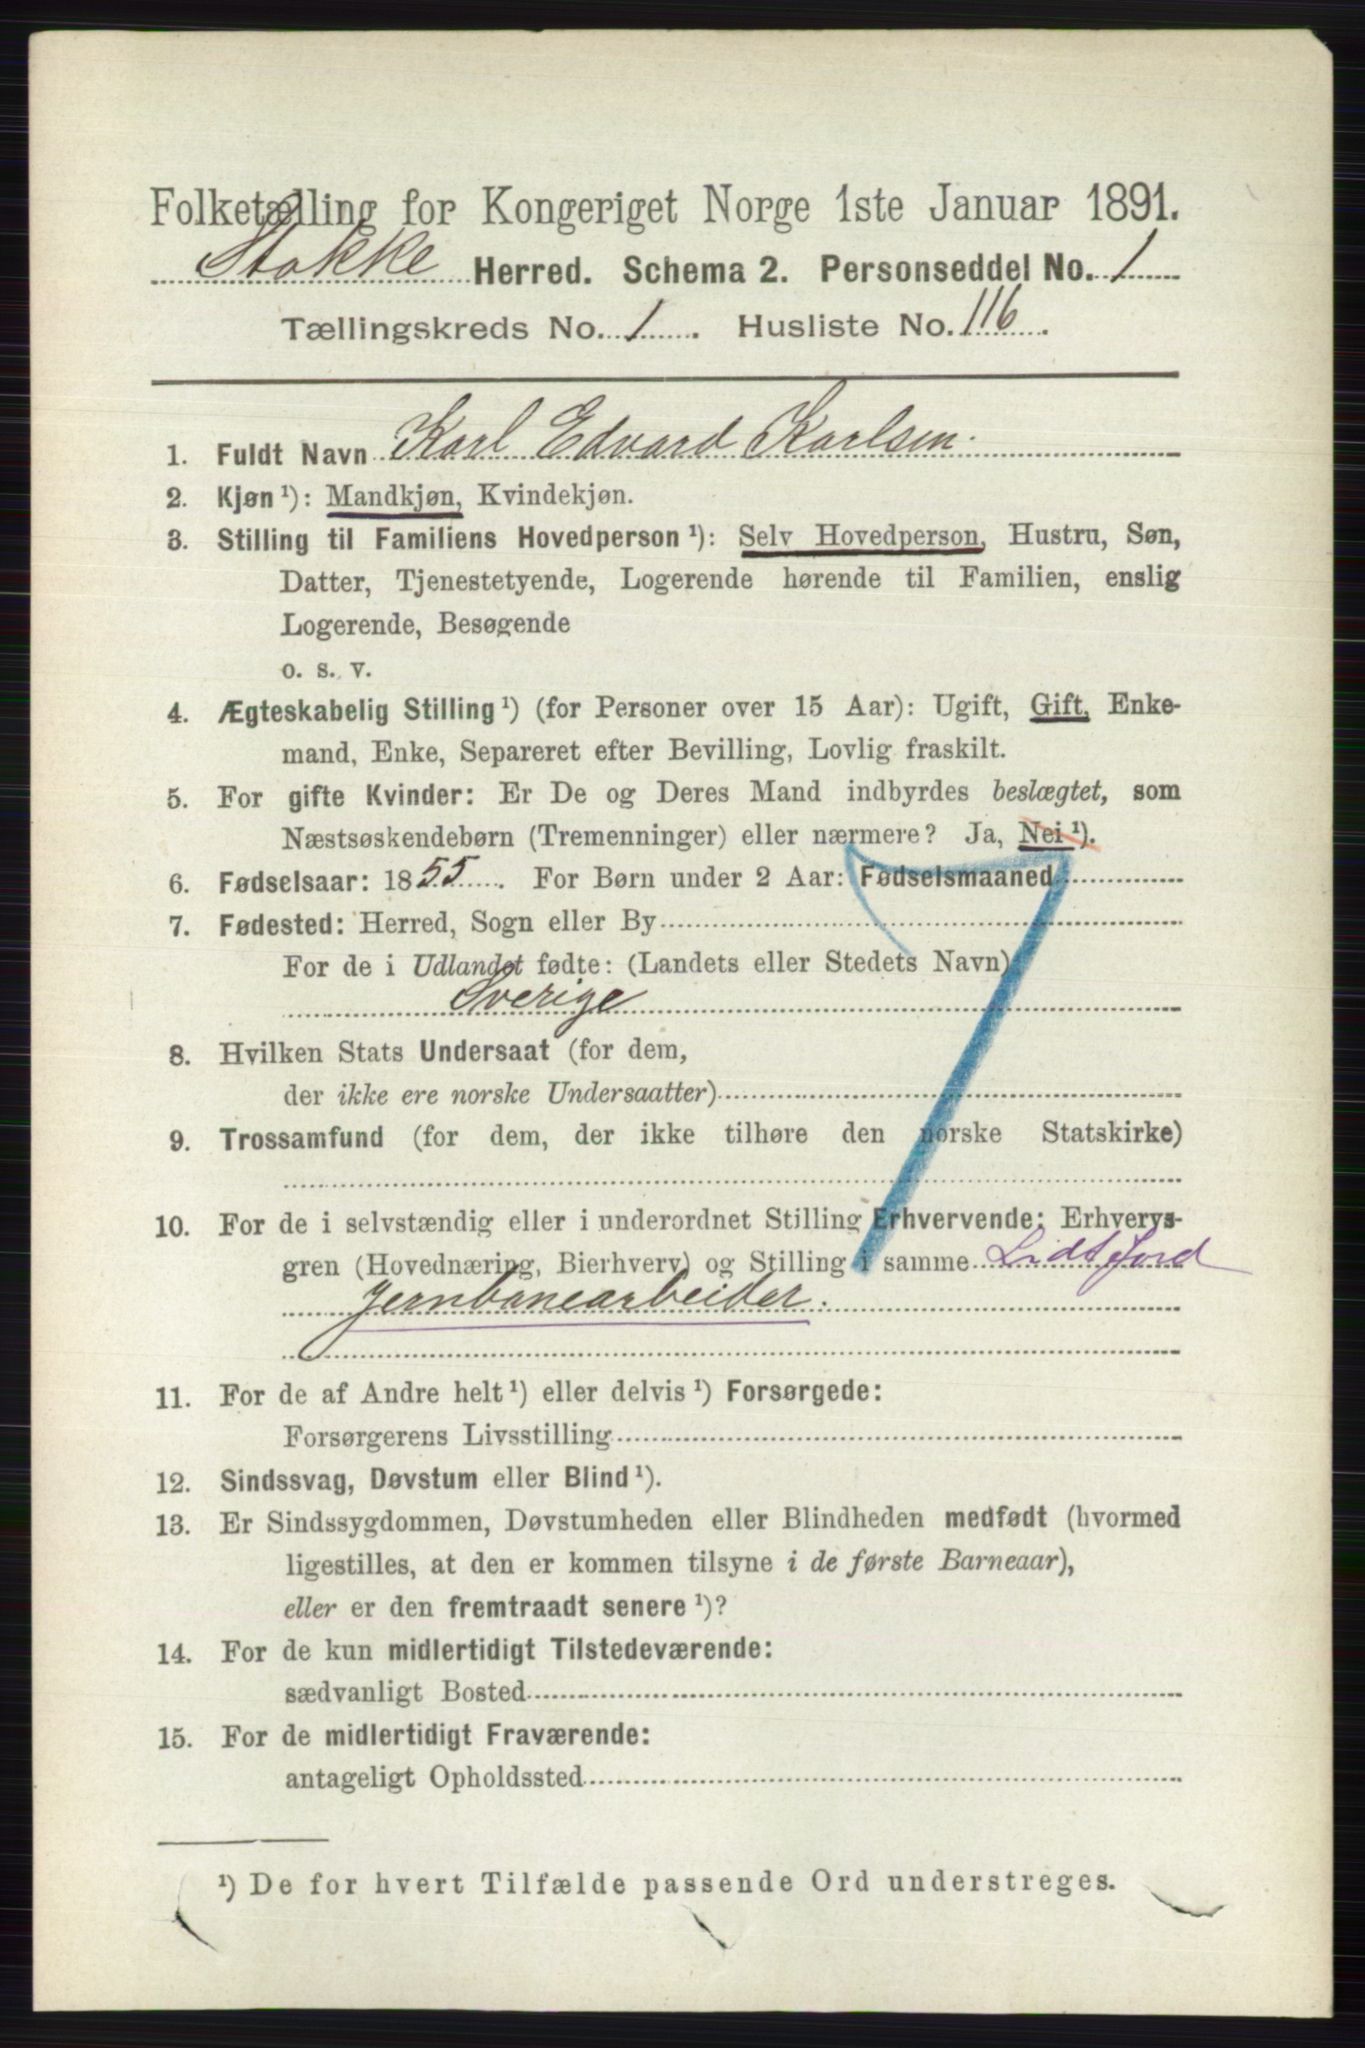 Folketælling for Kongeriget Norge 1ste Januar 1891.
Stokke Herred. Schema 2. Personseddel No. 1
Tællingskreds No. 1. Husliste No. 116.
1. Fuldt Navn Karl Edvard Karlsen.
2. Kjøn ¹): Mandkjøn, Kvindekjøn.
3. Stilling til Familiens Hovedperson ¹): Selv Hovedperson, Hustru, Søn,
Datter, Tjenestetyende, Logerende hørende til Familien, enslig
Logerende, Besøgende
o. s. v.
4. Ægteskabelig Stilling ¹) (for Personer over 15 Aar): Ugift, Gift, Enke-
mand, Enke, Separeret efter Bevilling, Lovlig fraskilt.
5. For gifte Kvinder: Er De og Deres Mand indbyrdes beslægtet, som
Næstsøskendebørn (Tremenninger) eller nærmere? Ja, Nei ¹).
6. Fødselsaar: 1855. For Børn under 2 Aar: Fødselsmaaned
7. Fødested: Herred, Sogn eller By
For de i Udlandet fødte: (Landets eller Stedets Navn)
Sverige
8. Hvilken Stats Undersaat (for dem,
der ikke ere norske Undersaatter)
9. Trossamfund (for dem, der ikke tilhøre den norske Statskirke)
10. For de i selvstændig eller i underordnet Stilling Erhvervende: Erhvervs-
gren (Hovednæring, Bierhverv) og Stilling i samme
Jernbanearbeider.
11. For de af Andre helt ¹) eller delvis ¹) Forsørgede:
Forsørgerens Livsstilling
12. Sindssvag, Døvstum eller Blind ¹).
13. Er Sindssygdommen, Døvstumheden eller Blindheden medfødt (hvormed
ligestilles, at den er kommen tilsyne i de første Barneaar),
eller er den fremtraadt senere ¹)?
14. For de kun midlertidigt Tilstedeværende:
sædvanligt Bosted
15. For de midlertidigt Fraværende:
antageligt Opholdssted
¹) De for hvert Tilfælde passende Ord understreges.